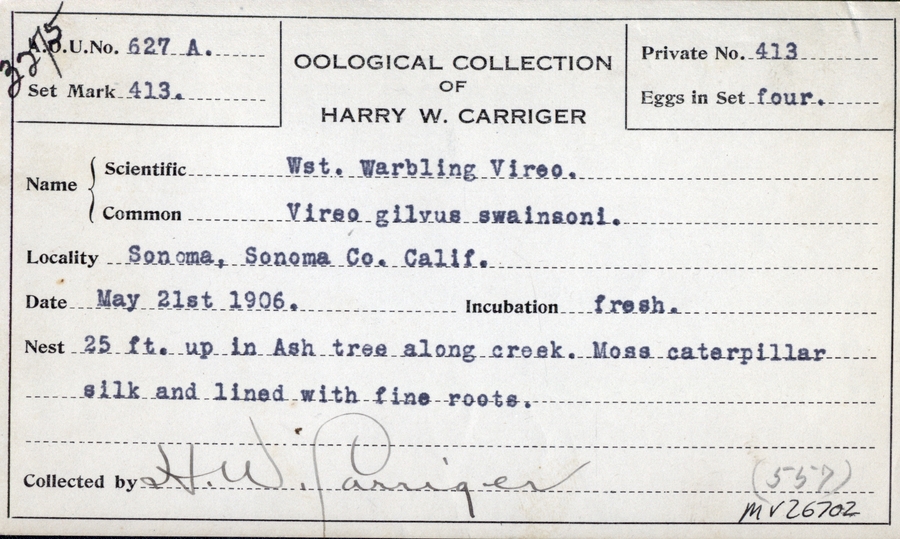 3275
A.O.U.No. 627 A.
Set Mark 413.
OOLOGICAL COLLECTION
OF
HARRY W. CARRIGER
Private No. 413
Eggs in Set four.
Name
Scientific Wst. Warbling Vireo.
Common Vireo gilvus swainsoni.
Locality Sonoma, Sonoma Co. Calif.
Date May 21st 1906. Incubation fresh.
Nest 25 ft. up in Ash tree along creek. Moss caterpillar
silk and lined with fine roots.
Collected by H. W. Carriger
(557)
MV26702